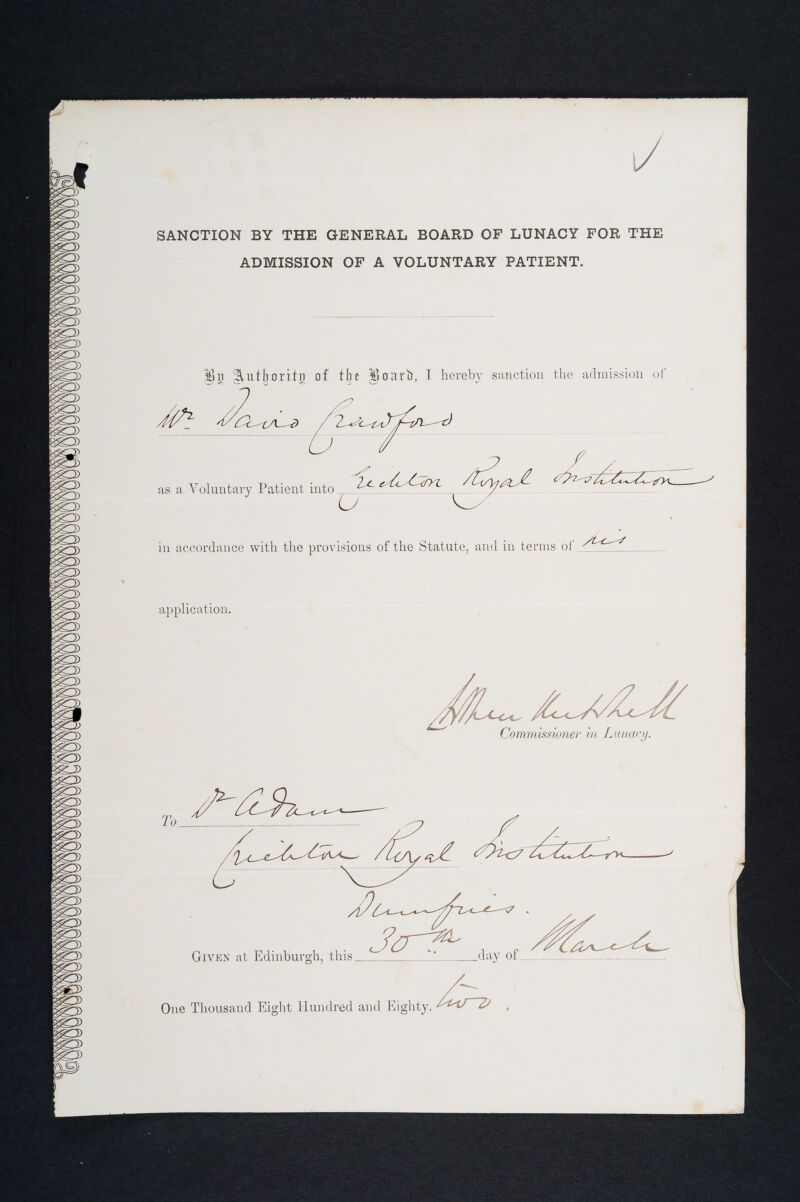 SANCTION BY THE GENERAL BOARD OF LUNACY FOR THE
ADMISSION OF A VOLUNTARY PATIENT.
By Authority of the Board, I hereby sanction the admission of
Mr David Crawford
as a Voluntary Patient into Crichton Royal Institution
in accordance with the provisions of the Statute, and in terms of his
application.
Arthur Mitchell
Commissioner in Lunacy.
To Dr Adam
Crichton Royal Institution
Dumfries.
GIVEN at Edinburgh, this 30th day of March
One Thousand Eight Hundred and Eighty. two.